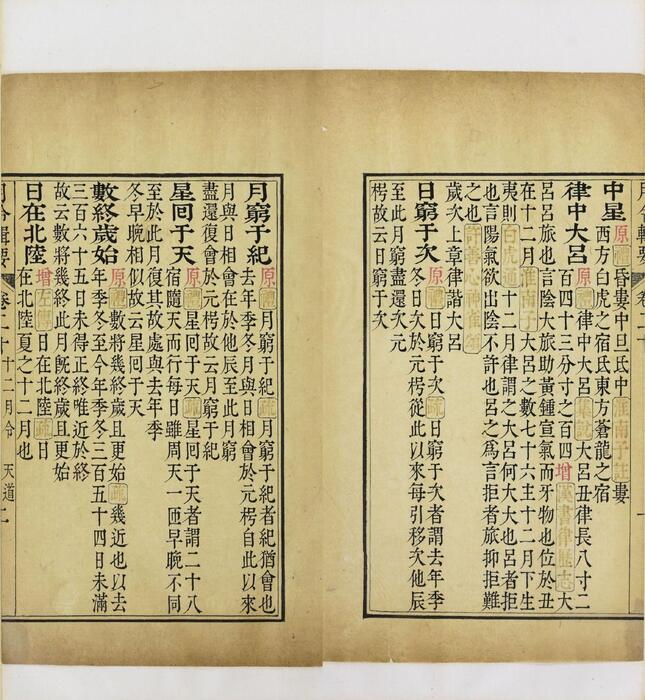 月令輯要 卷二十 一
中星 原 禮 昏婁中旦氐中 淮南子註 婁
西方白虎之宿氐東方蒼龍之宿
律中大呂 原 禮 律中大呂 大呂丑律長八寸二
百四十三分寸之百四 增 漢書律歷志 大
呂呂旅也言陰大旅助黃鍾宣氣而牙物也位於丑
在十二月 淮南子 大呂之數七十六主十二月下生
夷則 白虎通 十二月律謂之大呂何大大也呂者拒
也言陽氣欲出陰不許也呂之爲言拒者旅抑拒難
之也 許善心神雀頌
歲次上章律諧大呂
日窮于次 原 禮 日窮于次 疏 日窮于次者謂去年季
冬日次於元枵從此以來每引移次他辰
至此月窮盡還次元
枵故云日窮于次
月窮于紀 原 禮 月窮于紀 疏 月窮于紀者紀猶會也
去年季冬月與日相會於元枵自此以來
月與日相會在於他辰至此月窮
盡還復會於元枵故云月窮于紀
星回于天 原 禮 星回于天 疏 星回于天者謂二十八
宿隨天而行每日雖周天一匝早晚不同
至於此月復其故處與去年季
冬早晚相似故云星回于天
數將幾終 歲且更始 原 禮 數將幾終歲且更始 疏 幾近也以去
年季冬至今年季冬三百五十四日未滿
三百六十五日未得正終唯近於終
故云數將幾終此月旣終歲且更始
日在北陸 增 左傳 日在北陸 疏 日
在北陸夏之十二月也
月令輯要 卷二十 十二月令 天道 二